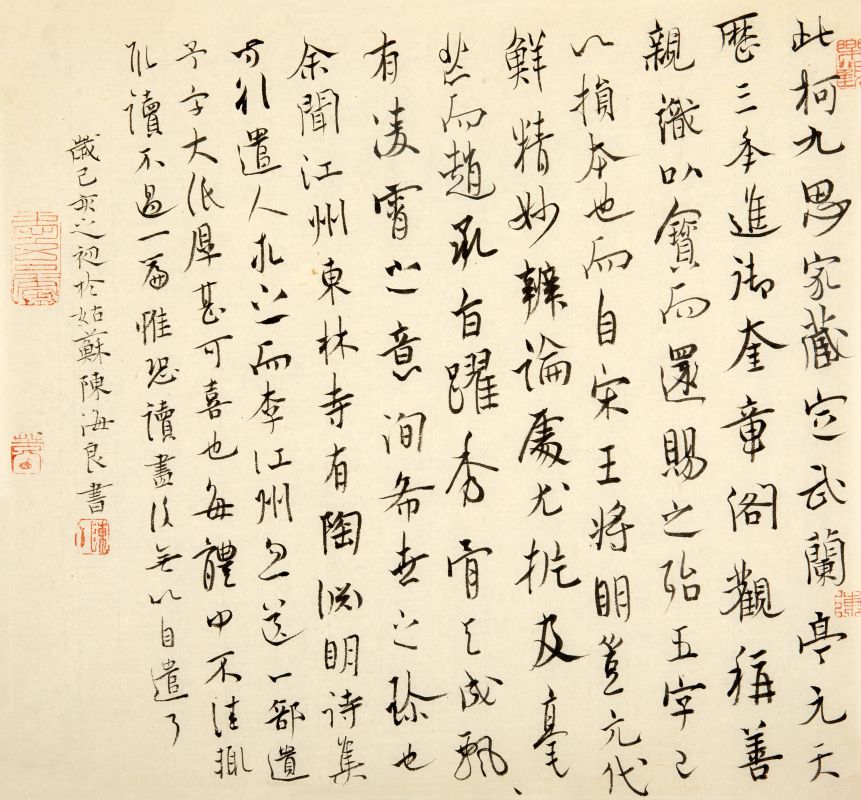 此柯九思家藏定武蘭亭元天
歷三年進御奎章閣觀稱善
親識以寶而還賜之殆五字已
以損本也而自宋王將明豈元代
鮮精妙辨論處尤批及毫
然而趙承自躍秀骨天成飄
有凌霄之意洵希世之珍也
余聞江州東林寺有陶淵明詩集
方引遣人求之而李江州忽送一部遺
予字大紙厚甚可喜也每體中不佳輒
取讀不過一篇惟恐讀盡後無以自遣了
歲己亥之初於姑蘇陳海良書